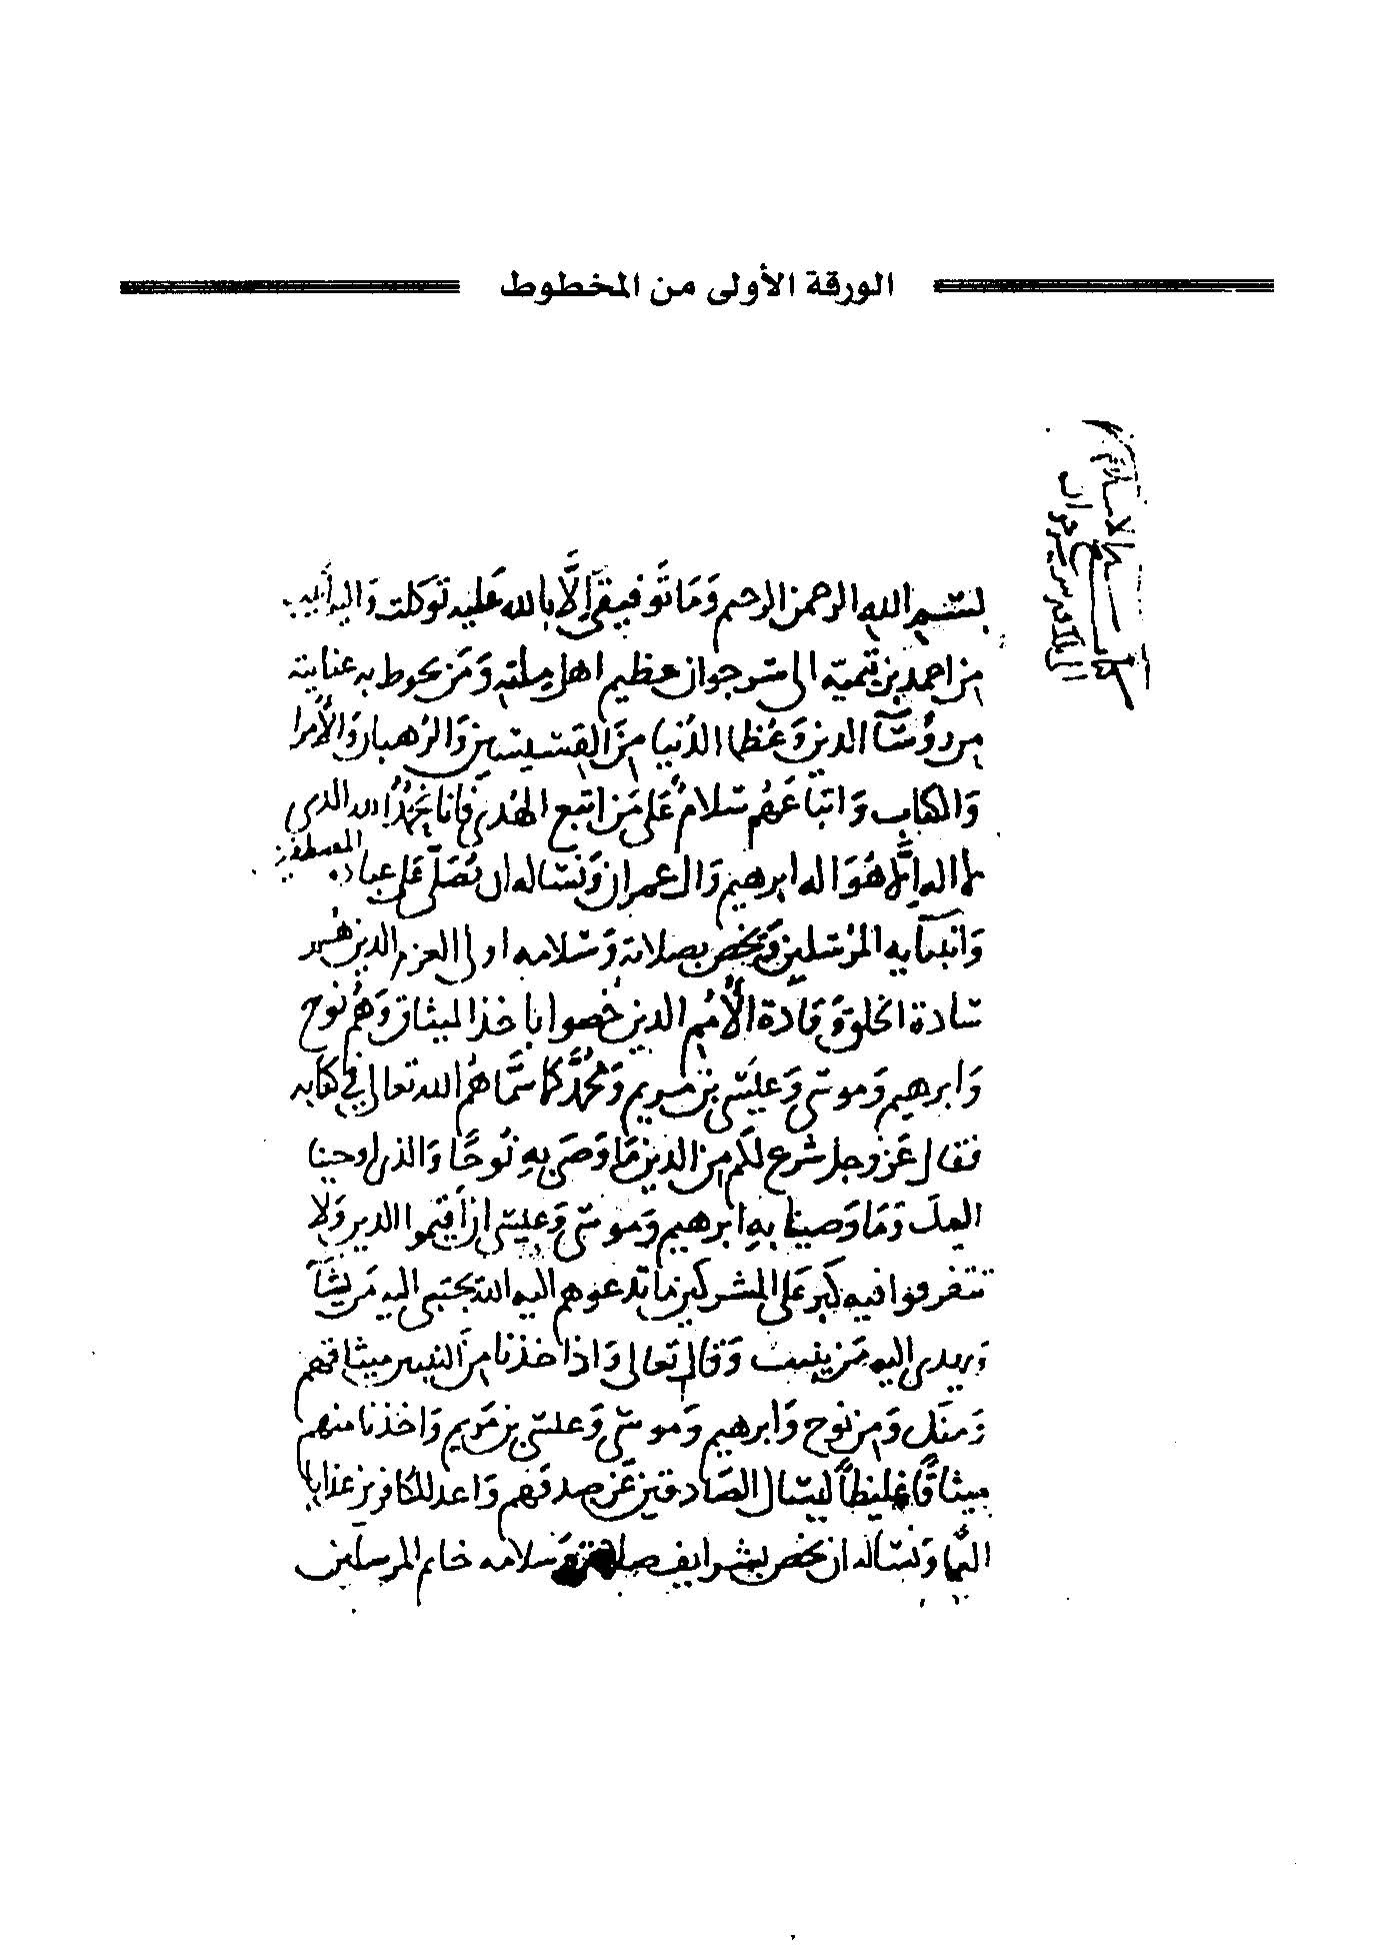 الورقة الأولى من المخطوط
بسم الله الرحمن الرحيم وَمَا تَوفيقي إلَّا بالله عَليه تَوكلت وَاليه أنيب
مِن احمد بن تَيمية الى سرجوان عظيم اهل مِلته وَمَن يحوط به عنايته
من رُؤسَآ الدين وَعُظما الدُنيا مِنَ القسيسين وَالرُهبان وَالأُمرا
وَالكتاب وَاتباعَهُم سَلامٌ عَلى مَن اتبع الهُدى فانا نَحمدُ الله الذي
لا اله إلَّا هُوَ اله ابرهيم وَال عمران وَنَساله ان يُصَلّي عَلى عباده المصطفين
وَانبيآيه المُرسلين وَيخص بصلاته وَسَلامه اولى العزم الذين هُم
سَادة الخلق وَقَادة الأُمَم الذين خُصوا باخذ الميثاق وَهُم نوح
وَابرهيم وَموسَى وَعيسَى بن مَريم وَمُحَمَّد كما سَمَّاهُم الله تعالى في كتابه
فقال عَزوجل شرع لكم مِن الدين مَا وَصَى بهِ نُوحًا وَالذي اوحينا
اليك وَمَا وَصينا بهِ ابرهيم وَموسَى وَعيسى ان أقيموا الدين وَلا
تتفرقوا فيه كَبر عَلى المشركين ما تدعوهم اليه الله يجتبى اليه مَن يشَآ
وَيهدى اليه مَن ينيب وَقال تَعالى وَاذ اخذنا مِنَ النبيين ميثاقهم
وَمنكَ وَمِن نوح وَابرهيم وَموسَى وَعيسى بن مَريم وَاخذنا منهم
ميثاقًا غليظاً ليسَال الصَادقين عَن صدقهم وَاعد للكافرين عذابا
اليمًا وَنسَاله ان يخص بشرايف صلاته وَسلامه خاتم المرسلين